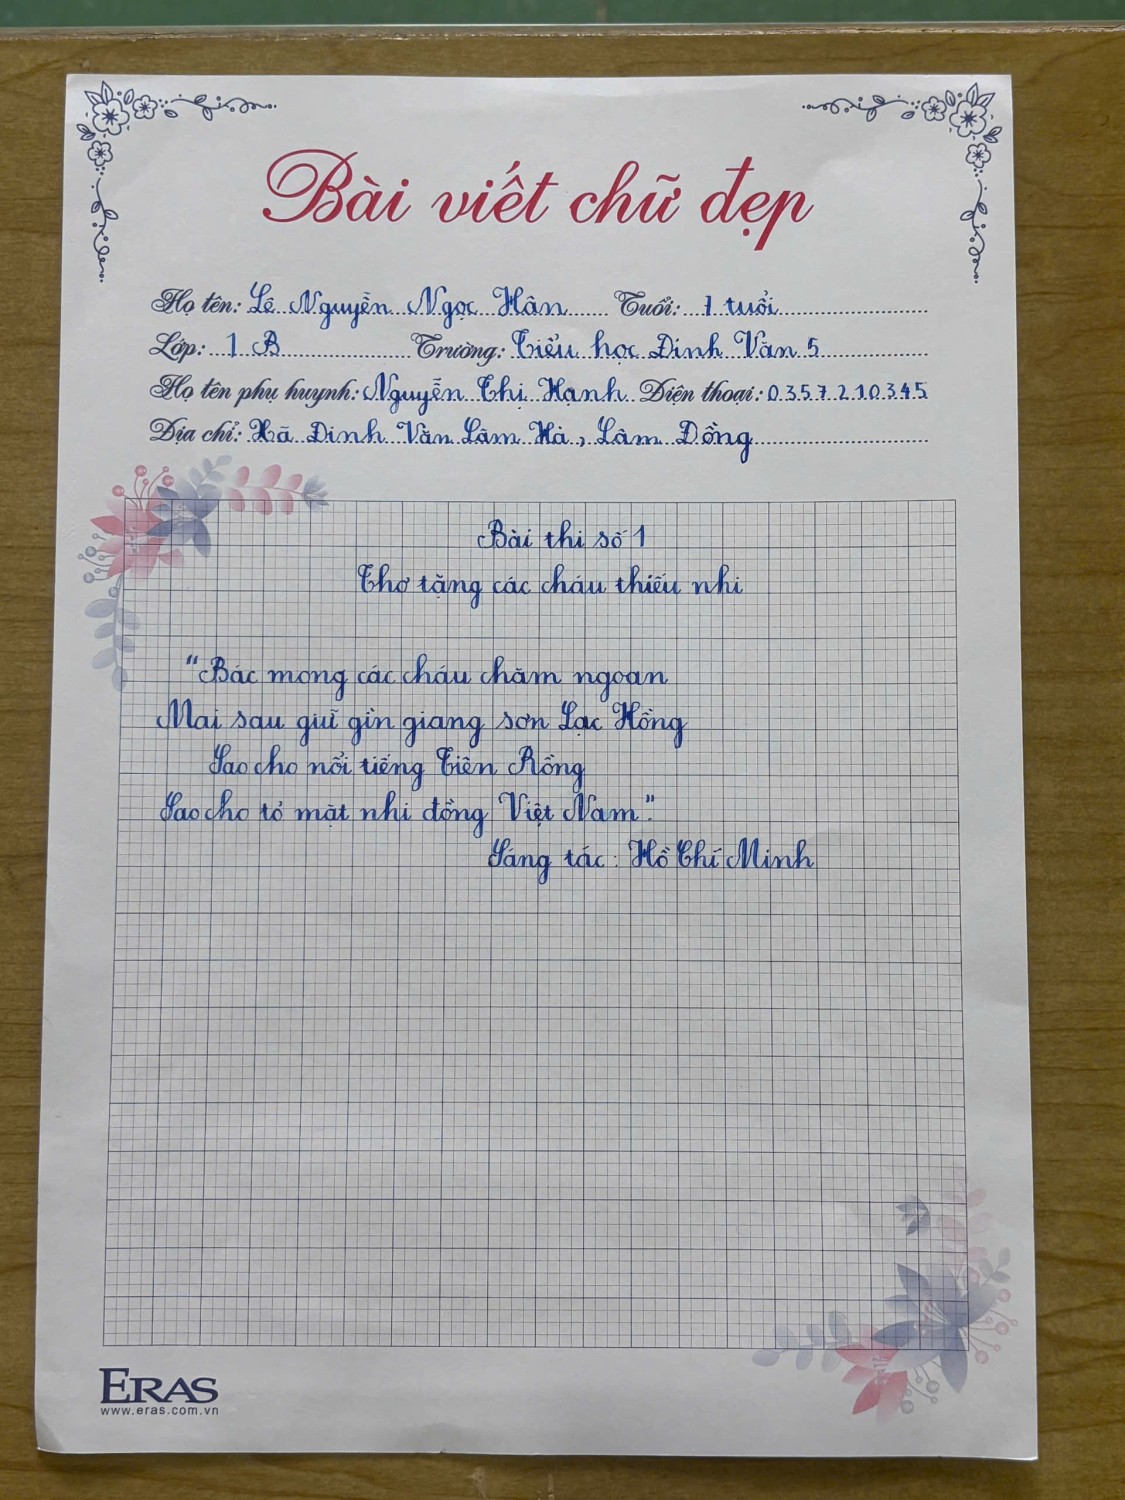 Bài viết chữ đẹp
Họ tên: Lê Nguyễn Ngọc Hân Tuổi: 7 tuổi
Lớp: 1 B Trường: Tiểu học Đinh Văn 5
Họ tên phụ huynh: Nguyễn Thị Hạnh Điện thoại: 0357210345
Địa chỉ: Xã Đinh Văn Lâm Hà, Lâm Đồng
Bài thi số 1
Thơ tặng các cháu thiếu nhi
"Bác mong các cháu chăm ngoan
Mai sau giữ gìn giang sơn Lạc Hồng
Sao cho nổi tiếng Tiên Rồng
Sao cho tỏ mặt nhi đồng Việt Nam."
Sáng tác: Hồ Chí Minh
ERAS
www.eras.com.vn